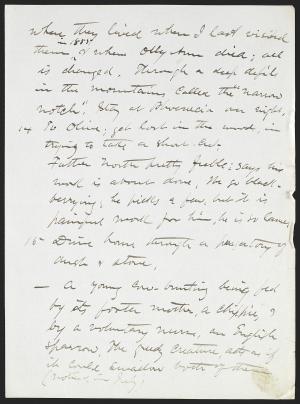 where they lived when I last visited
them in 1885, & when Olly Ann died; all
is changed. Through a deep defile
in the mountains called the "narrow
notch". Stay at
14 To Olive; get lost in the woods, in
trying to take a short cut.
Father North pretty feeble; says his
work is about done. We go black-
berrying; he picks a few, but it is
painful work for him, he is so lame.
15 Drive home through a purgatory of
dust & stone.
— A young cow-bunting being fed
by its foster mother, a chippie, &
by a voluntary nurse, an English
sparrow. The greedy creature acts as if
it could swallow both of them
(noted in July)